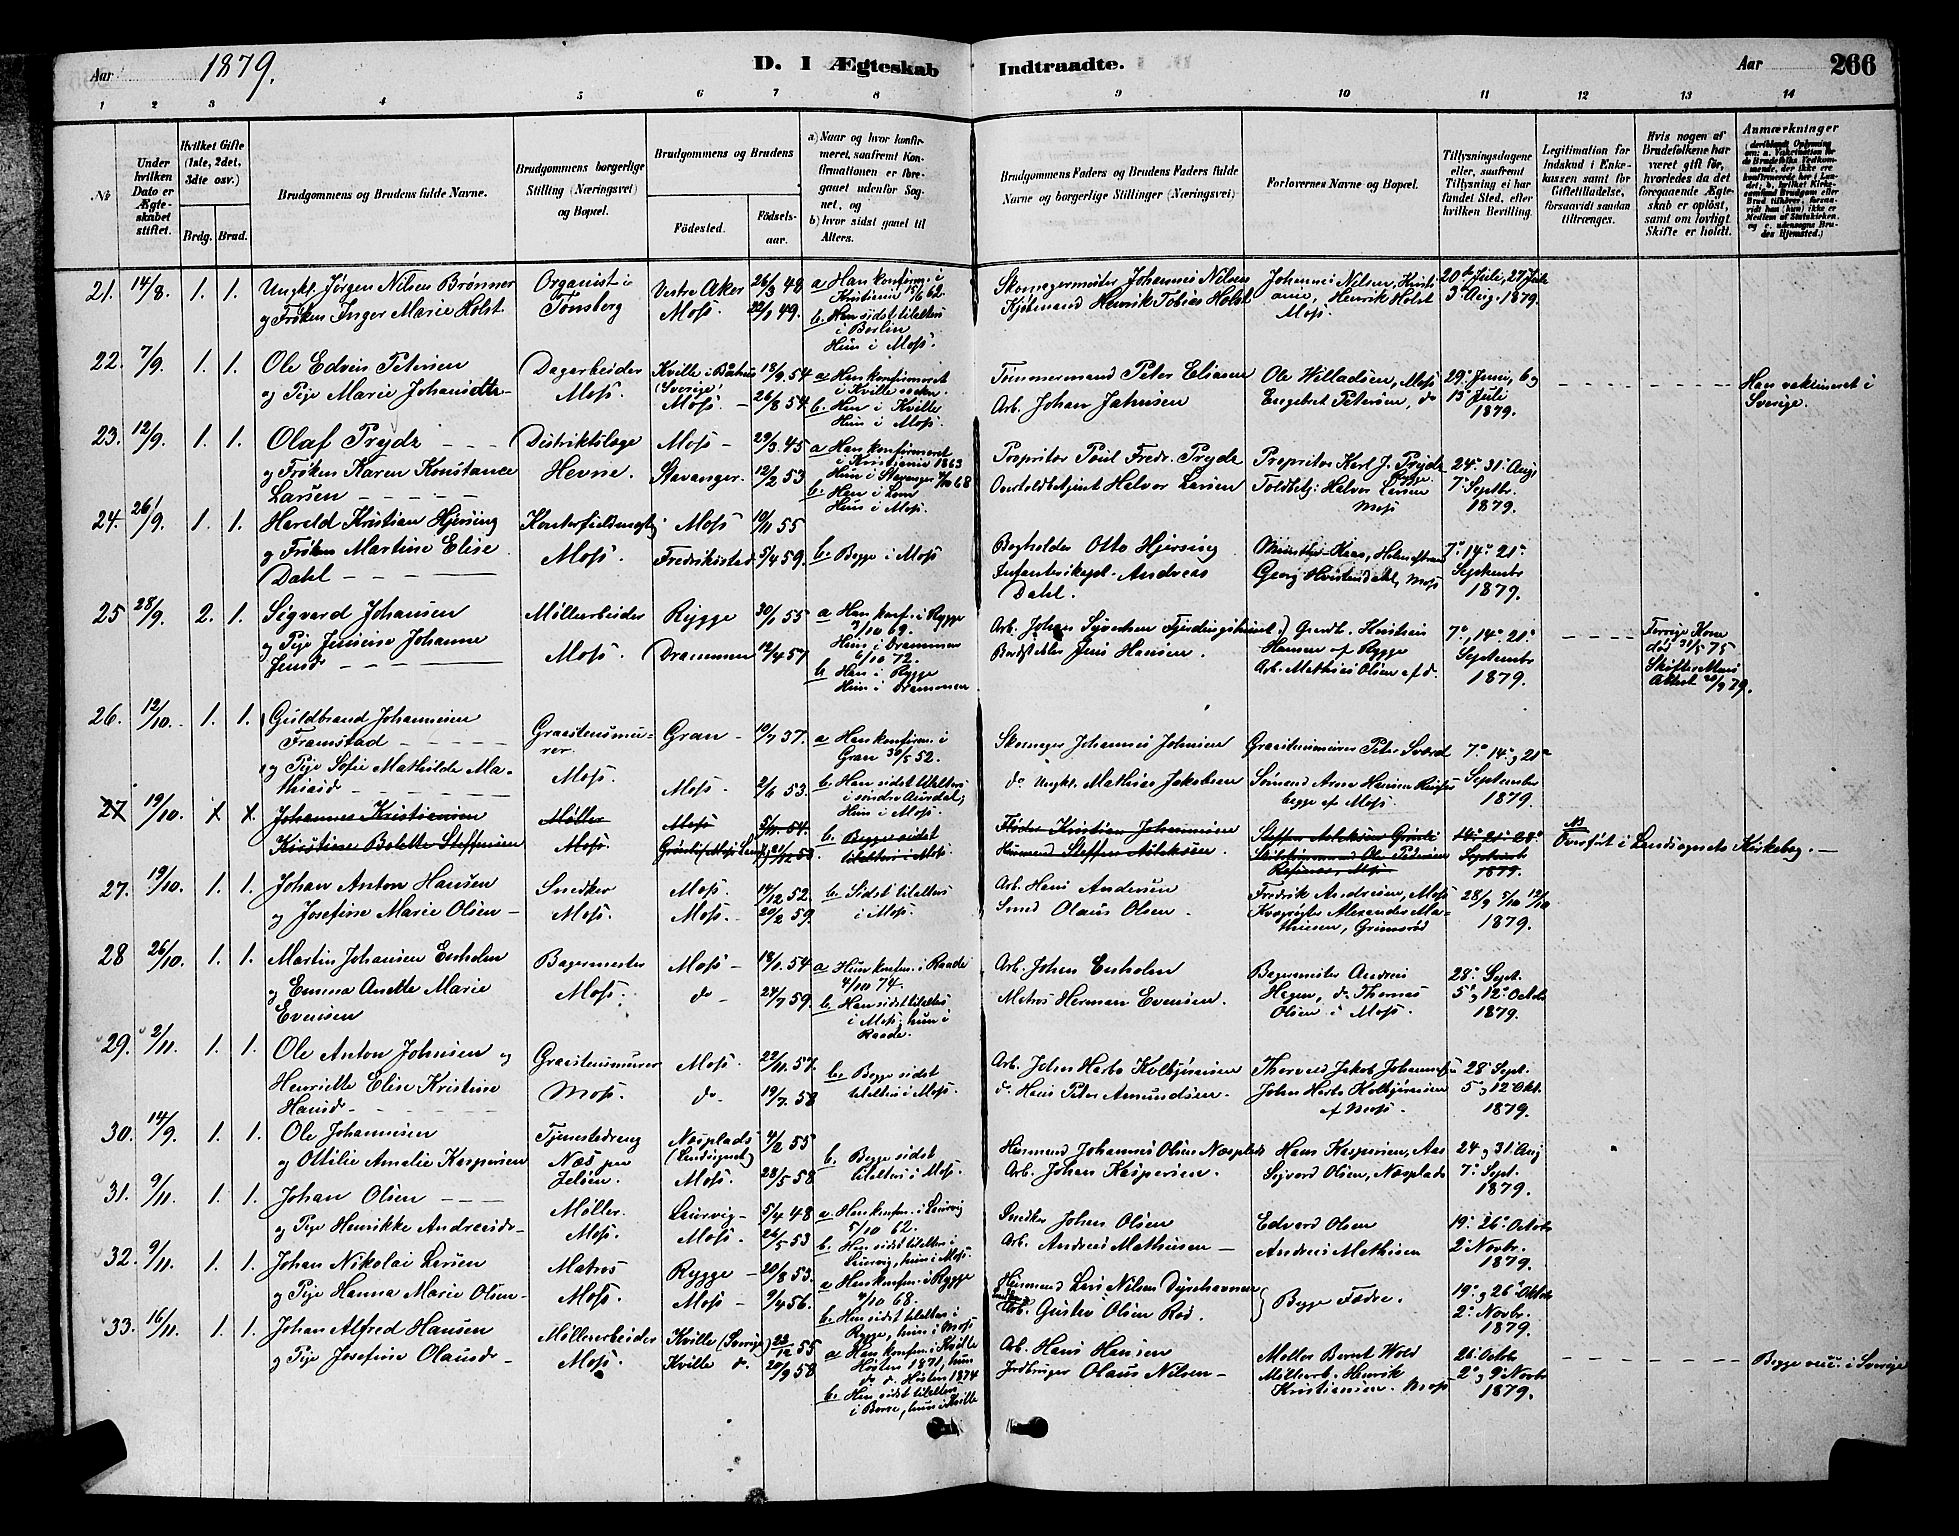 Aar 1879. D. I Ægteskab Indtraadte. Aar 266
1 2 3 4 5 6 7 8 9 10 11 12 13 14
Nr.
Under hvilken Dato er Ægteskabet stiftet.
Hvilket Gifte (1ste, 2det, 3die osv.)
Brdg. Brud.
Brudgommens og Brudens fulde Navne.
Brudgommens borgerlige Stilling (Næringsvei) og Bopæl.
Brudgommens og Brudens
Fødested. Fødselsaar.
a) Naar og hvor konfirmeret, saafremt Konfirmationen er foregaaet udenfor Sognet, og
b) hvor sidst gaaet til Alters.
Brudgommens Faders og Brudens Faders fulde Navne og borgerlige Stillinger (Næringsvei)
Forlovernes Navne og Bopæl.
Tillysningsdagene eller, saafremt Tillysning ei har fundet Sted, efter hvilken Bevilling.
Legitimation for Indskud i Enkekassen samt for Giftetilladelse, forsaavidt saadan tiltrænges.
Hvis nogen af Brudefolkene har været gift før, hvorledes da det foregaaende Ægteskab er opløst, samt om lovligt Skifte er holdt.
Anmærkninger
21. 14/8. 1. 1. Ungk. Jørgen Nilsen Brønner
og Frøken Inger Marie Holst.
Organist i Tønsberg
Vestre Aker 26/3 48
Moss. 22/1 49.
a. Han konfirm. i Kristiania 15/6 62.
b. Han sidst tilalters i Berlin
Hun i Moss.
Skomagermester Johannes Nilsen
Kjøbmand Henrik Tobias Holst
Johannes Nilsen, Kristiania, Henrik Holst Moss.
20de Juli, 27 Juli 3de Aug. 1879.
22. 7/9. 1. 1. Ole Edvin Petersen
og Pige Marie Johansdtr
Dagarbeider Moss.
Kville i Båhus (Sverige) 18/9 54
Moss. 26/8 54
a. Han konfirmeret i Kville sockn.
b. Han i Kville
Hun i Moss.
Timmermand Peter Eliasen
Arb. Johan Jahnsen
Ole Willadsen, Moss
Engebret Petersen, do
29. Juni, 6 og 13 Juli 1879.
Han vaktineret i Sverige.
23. 12/9. 1. 1. Olaf Prydz
og Frøken Karen Konstance Larsen
Distriktslæge Hevne.
Moss 29/3 45
Stavanger. 12/2 53
a. Han konfirmeret i Kristiania 1863
Hun i Stavanger 4/10 68
b. Han i Lom
Hun i Moss.
Propritær Poul Fredr. Prydz
Overtoldbetjent Halvor Larsen
Propritær Karl J. Prydz Rygge
Toldbetj. Halvor Larsen Moss
24. 31. Aug. 7. Septbr. 1879.
24. 26/9. 1. 1. Harald Kristian Hjersing
og Frøken Martine Elise Dahl
Moss.
Moss 10/11 55
Fredrikstad 5/4 59.
b. Begge i Moss
Bogholder Otto Hjersing
Infanterikapt. Andreas Dahl.
Georg Hvistendahl, Moss
7. 14. 21. September 1879.
25 28/9. 2. 1. Sigvard Johansen
og Pige Jensine Johanne Jensdr
Møllearbeider Moss.
Rygge 30/1 55
Drammen 12/4 57
a. Han konf. i Rygge 3/10 69.
Hun i Drammen 6/10 72.
b. Han i Rygge
Hun i Drammen
Arb. Johan Syvertsen
Jens Hansen.
Gaardb. Kristian Hansen af Rygge
Arb. Mathias Olsen af do.
7., 14. 21. September 1879.
Forrige Kone død 31/5 75
26. 12/10. 1. 1. Guldbrand Johannesen Framstad
og Pige Sofie Mathilde Mathiasd
Graastensmurer Moss.
Gran 10/7 37.
Moss 2/6 53.
a. Han konfirm. i Gran 30/5 52.
b. Han sidst tilalters i søndre Aurdal,
Hun i Moss.
Skomager Johannes Johnsen
do Ungk. Mathias Jakobsen
Graastensmurer Peter Sværd
Sømand Arne Hansen
begge af Moss.
7. 14. og 21. September 1879.
27 19/10. Johannes Kristiansen
Kirstine Bolette Steffensen
Møller Moss.
Moss 5/11 54.
b. Begge sidst tilalters i Moss.
Fløter Kristian Johannesen
Husmand Steffen Aslaksen.
Steffen Aslaksen Grønli
14. 21. 28. September 1879.
NB Overført i Landsognets Kirkebog.
27. 19/10. 1. 1. Johan Anton Hansen
og Josefine Marie Olsen
Snedker Moss.
Moss. 14/12 52.
Moss. 20/2 59.
b. Sidst tilalters i Moss.
Arb. Hans Andersen
Smed Olaus Olsen.
Fredrik Andersen, Moss
Alexander Mathiesen, Grimsrød
28/9 5/10 12/10 1879.
28 26/10. 1. 1. Martin Johansen Enholm
og Emma Anette Marie Evensen
Bagermester Moss.
Moss 18/1 54
do 24/7 59.
a. Hun konfm. i Raade 4/10 74.
b. Han sidst tilalters i Moss, hun i Raade.
Arb. Johan Enholm
Matros Herman Evensen.
Bagermester Andreas Hagen, do Thomas Olsen i Moss.
28. Sept. 5. og 12. October 1879.
29. 2/11. 1. 1. Ole Anton Johnsen og
Henriette Elise Kristine Hansdr
Graastensmurer Moss.
Moss. 22/11 57.
do 19/7 58
b. Begge sidst tilalters i Moss.
Arb. John Harbo Kolbjørnsen
do Hans Peter Amundsen.
Thorvald Jakob Johannessen
John Harbo Kolbjørnsen af Moss.
28 Sept. 5 og 12. Okt. 1879.
30. 14/9. 1. 1. Ole Johannesen
og Ottilie Amalie Kaspersen
Tjenestedreng Næs paa Jeløen.
Næsplads (Landsognet) 4/2 55
Moss. 28/5 58
b. Begge sidst tilalters i Moss.
Husmand Johannes Olsen Næsplads
Arb. Johan Kaspersen.
Hans Kaspersen, Aas
Sigvard Olsen, Næsplads
24 og 31. Aug 7. Sept. 1879.
31. 9/11. 1. 1. Johan Olsen
og Pige Henrikke Andreasdr.
Møller. Moss.
Laurvig 5/4 48
Moss. 26/5 53
a. Han konfm. i Laurvig 5/10 62.
b. Han sidst tilalters i Laurvig, hun i Moss.
Snedker Johan Olsen
Arb. Andreas Mathiesen
Edvard Olsen
Andreas Mathisen
19. 26. October 2. Novbr. 1879.
32. 9/11. 1. 1. Johan Nikolai Larsen
og Pige Hanna Marie Olsen
Matros Moss.
Rygge 20/8 53.
Moss 9/4 56.
a. Han konfm. i Rygge 4/10 68.
b. Han sidst tilalters i Rygge, hun i Moss
Husmand Lars Nilsen Dyrehavnen
Arb. Gustav Olsen Rød.
Begge Fædre.
19. og 26. Oktober 2. Novbr. 1879.
33. 16/11. 1. 1. Johan Alfred Hansen
og Pige Josefine Olausdr
Møllearbeider Moss.
Kville (Sverige) 22/12 55
Kville do. 20/9 58
a. Han konfm. i Kville Høsten 1871, hun do. do. Høsten 1874
b. Han sidst tilalters i Borre, hun i Kville
Arb. Hans Hansen
Jordbruger Olaus Nilsen
Møller Bernt Wold
Møllearb. Henrik Kristiansen. Moss
26. Octobr 2. og 9. Novbr 1879.
Begge vacc. i Sverige